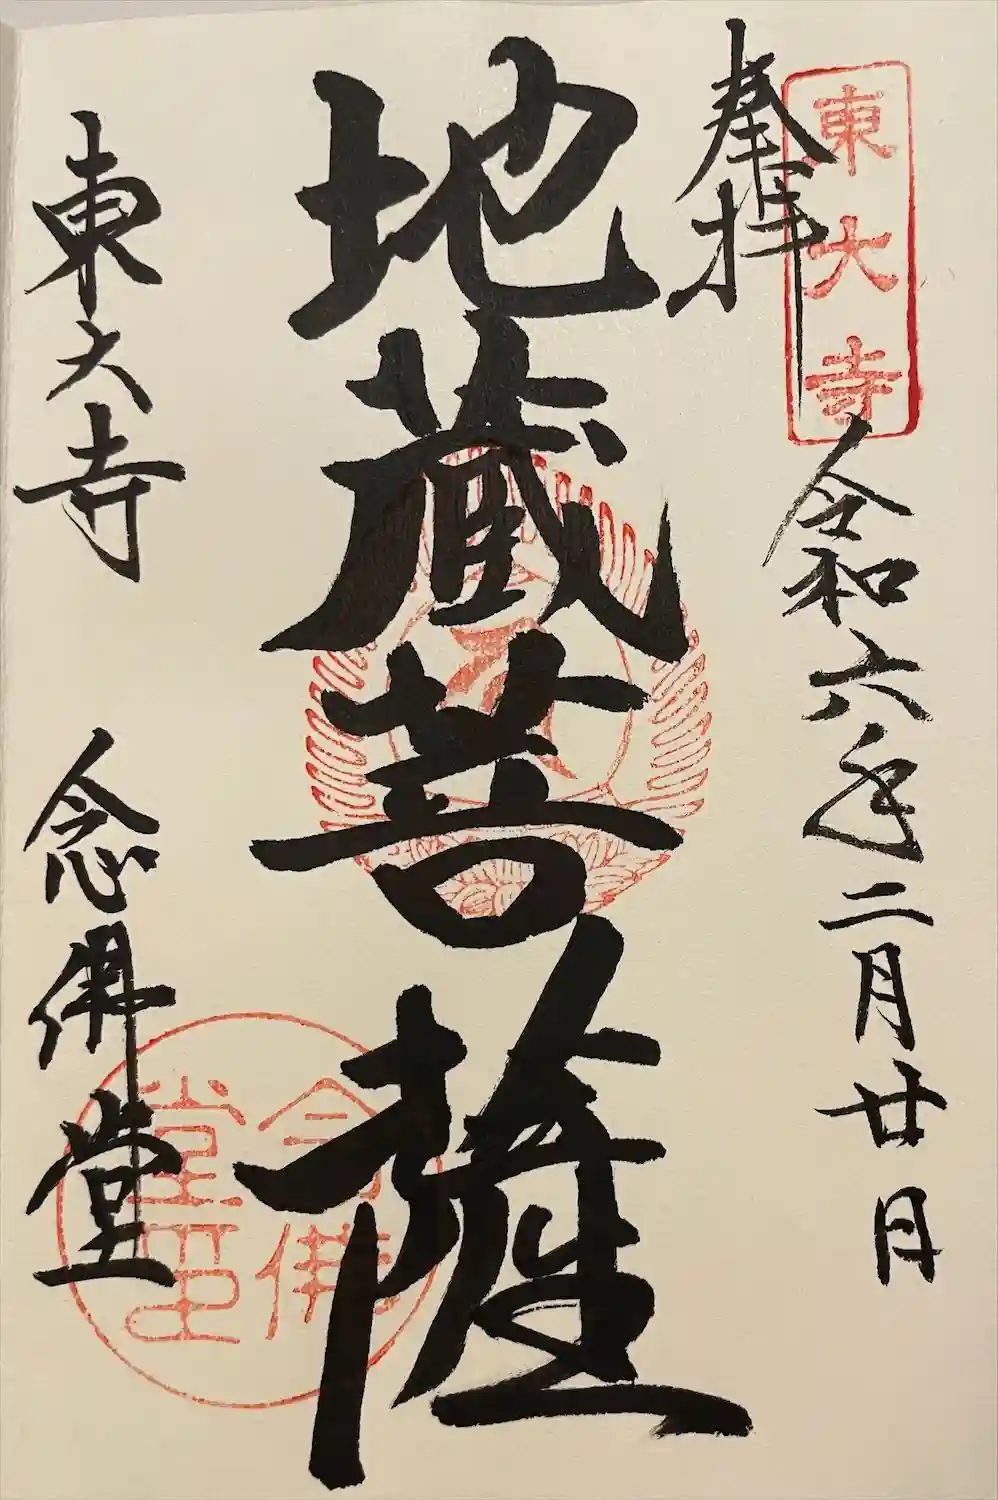 東大寺
奉拝
令和六年二月廿日
地蔵菩薩
東大寺 念佛堂
念佛堂印